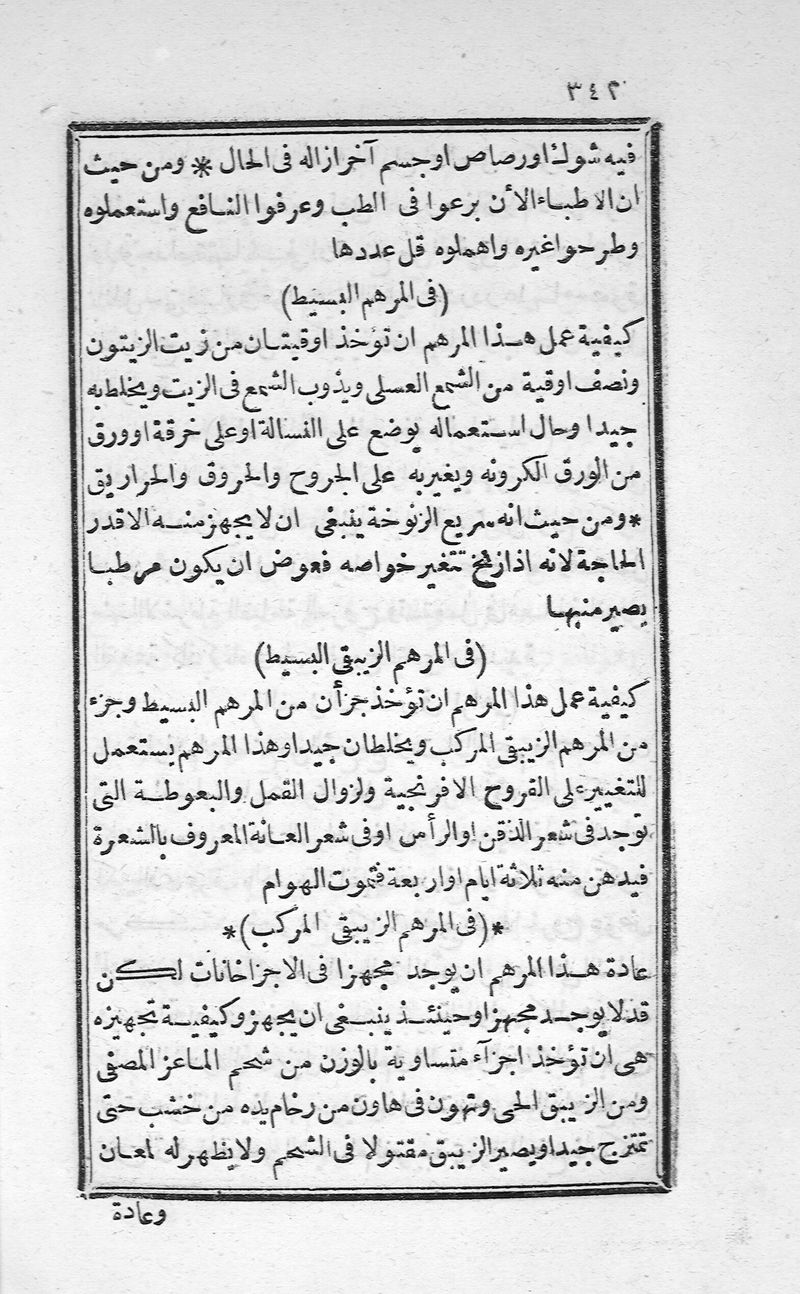 ٣٤٢
فيه شوك او رصاص او جسم آخر ازاله فى الحال * ومن حيث
ان الاطباء الأن برعوا فى الطب وعرفوا النافع واستعملوه
وطرحوا غيره واهملوه قل عددها
(فى المرهم البسيط)
كيفية عمل هذا المرهم ان تؤخذ اوقيتان من زيت الزيتون
ونصف اوقية من الشمع العسلى ويذوب الشمع فى الزيت ويخلط به
جيدا وحال استعماله يوضع على النسالة او على خرقة او ورق
من الورق الكرونه ويغير به على الجروح والحروق والحراريق
* ومن حيث انه سريع الزنوخة ينبغى ان لا يجهز منه الا قدر
الحاجة لانه اذا زنخ تتغير خواصه فعوض ان يكون مرطبا
يصير منبها
(فى المرهم الزيبقى البسيط)
كيفية عمل هذا المرهم ان تؤخذ جزأن من المرهم البسيط وجزء
من المرهم الزيبقى المركب ويخلطان جيدا وهذا المرهم يستعمل
للتغيير على القروح الافرنجية ولزوال القمل والبعوطة التى
توجد فى شعر الذقن او الرأس او فى شعر العانة المعروف بالشعرة
فيدهن منه ثلاثة ايام او اربعة فتموت الهوام
*(فى المرهم الزيبقى المركب)*
عادة هذا المرهم ان يوجد مجهزا فى الاجزاخانات لكن
قد لا يوجد مجهزا وحينئذ ينبغى ان يجهز وكيفية تجهيزه
هى ان تؤخذ اجزآء متساوية بالوزن من شحم الماعز المصفى
ومن الزيبق الحى وتهون فى هاون من رخام يده من خشب حتى
تمتزج جيدا ويصير الزيبق مقتولا فى الشحم ولا يظهر له لمعان
وعادة